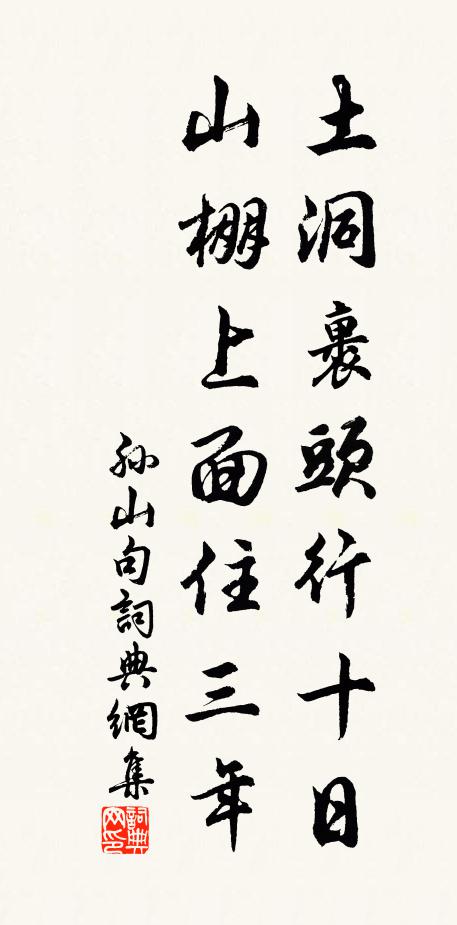 土洞裹頭行十日
山棚上面住三年
孙山句詞典網集
詞典网印